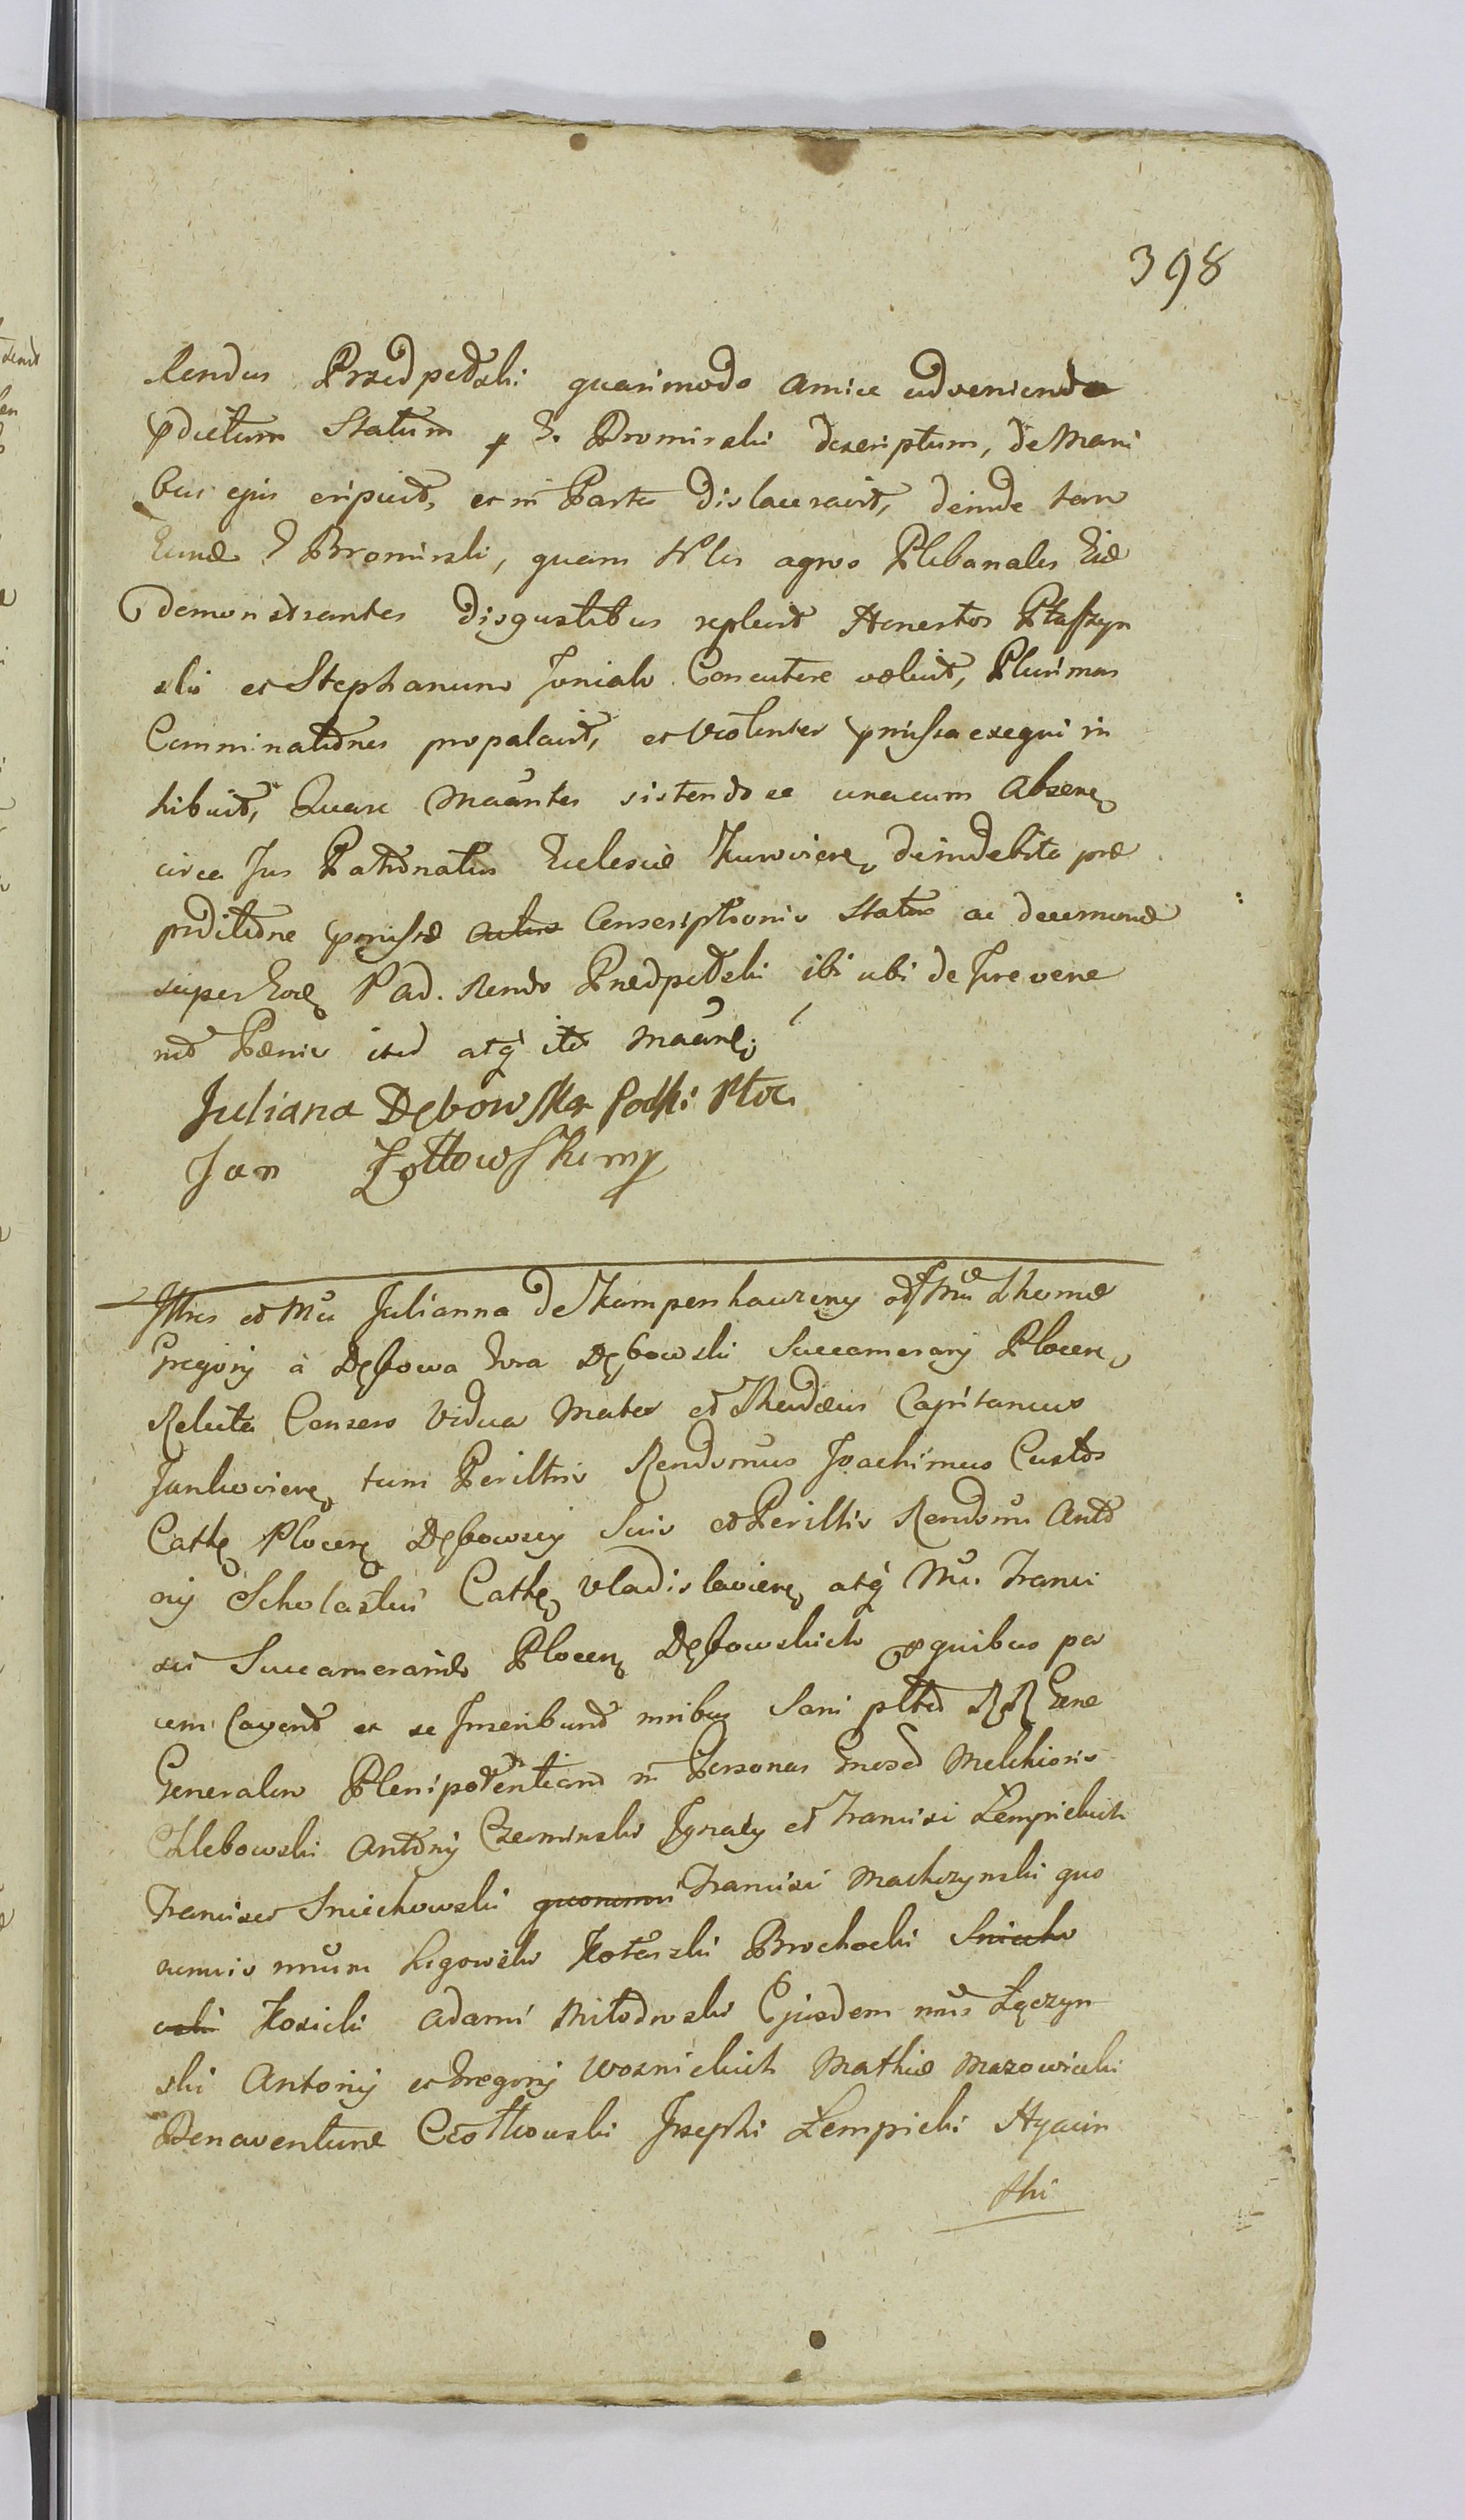 398
Rendus Przedpedzki quasimodo amice adveniendo
pdictum Statum p G. Bromirski descriptum, de Mani
bus ejus eripuit, et in Partes dislaceravit, deinde tam
Eund G Bromirski, quam Nles agros Plebanales Eid
demonstrantes disgustibus replevit Honestos Ptaszyn
ski et Stephanum Joniak Concutere voluit, Plurimas
Comminationes propalavit, et violenter pmissa exequi in
hibuit, Quare Maantes sistendo se unacum absen
circa Jus Patronatus Ecclesiæ Kurovien deindebita præ
pnditione pmissæ Conscriptionis Status ac decernend
super Eod Pad. Rendo Przedpedzki ibi ubi de Jure vene
rit Pænis iter atq iter Maan
Juliana Dębowska Podki Płoc
Jan Żółtowski mp
Illris et Mca Julianna de Kampenhauzeny olim Mci Thomæ
Gregorij à Dębowa Gora Dębowski Succamerarij Plocen
Relicta Consors Vidua Mater et Thadæus Capitaneus
Jankovien tum Perilltris Rendsmus Joachimus Custos
Cath Plocen Dębowscy Suis et Perilltris Rendsmi Anto
nij Scholastici Cath Vladislavien atq Mci Franci
sci Succamerarid Plocen Dębowskich p quibus pa
cem Cavend et se Inscribund nnibus Sani pltd RR Gene
Generalem Plenipotentiam in Personas Gnosd Melchioris
Chlebowski Antonij Czerminski Ignatij et Francisci Lempickich
Francisci Sniechowski quonomni Francisci Machczynski quo
numvis nnum Ligowski Kotarski Brochocki Sniecho
wski Kosicki Adami Miłodrowski Ejusdem nnis Łączyn
ski Antonij et Gregorij Woznickich Mathiæ Mazowiecki
Benaventuræ Ciołkowski Josephi Lempicki Hyacin
thi